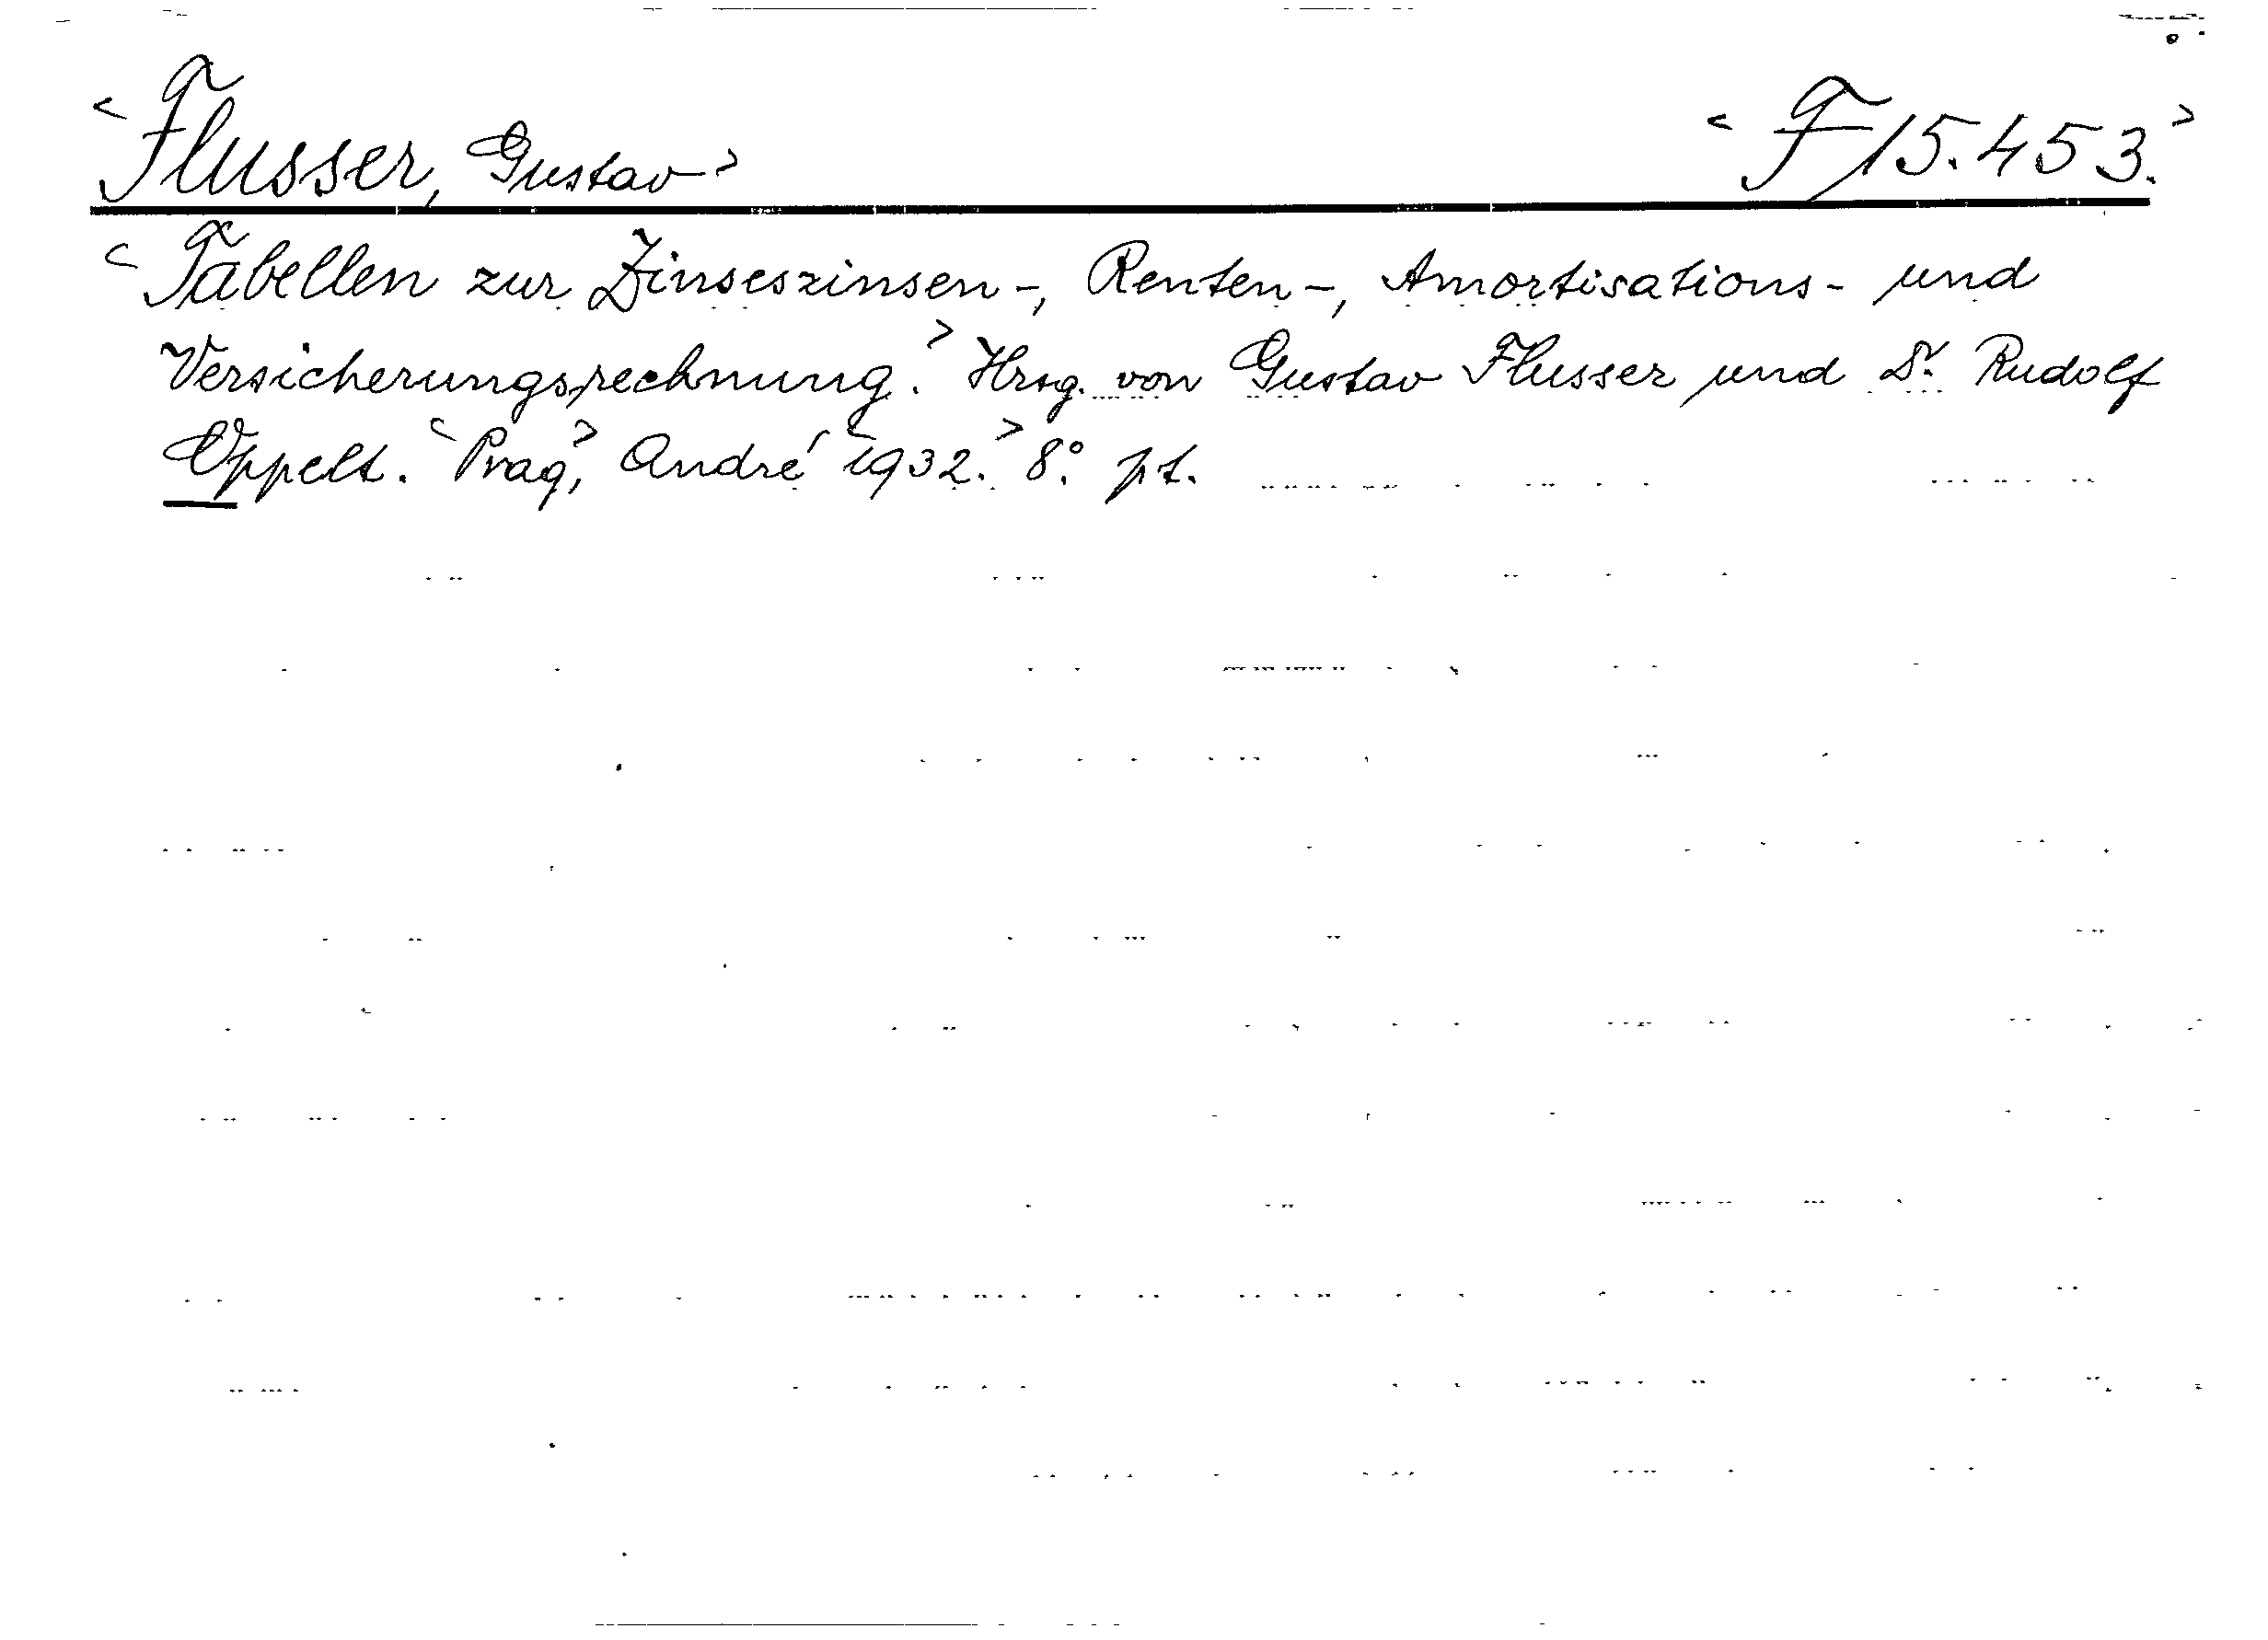 <Flusser, Gustav> <F 15.453.>
<Tabellen zur Zinseszinsen-, Renten-, Amortisations- und
Versicherungsrechnung.> Hrsg. von Gustav Flusser und Dr. Rudolf
Oppelt. <Prag>, André <1932.> 8°. pt.